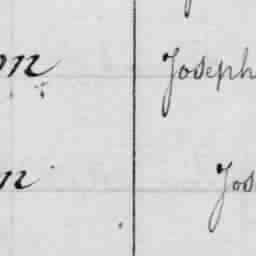 on Joseph
n Jos